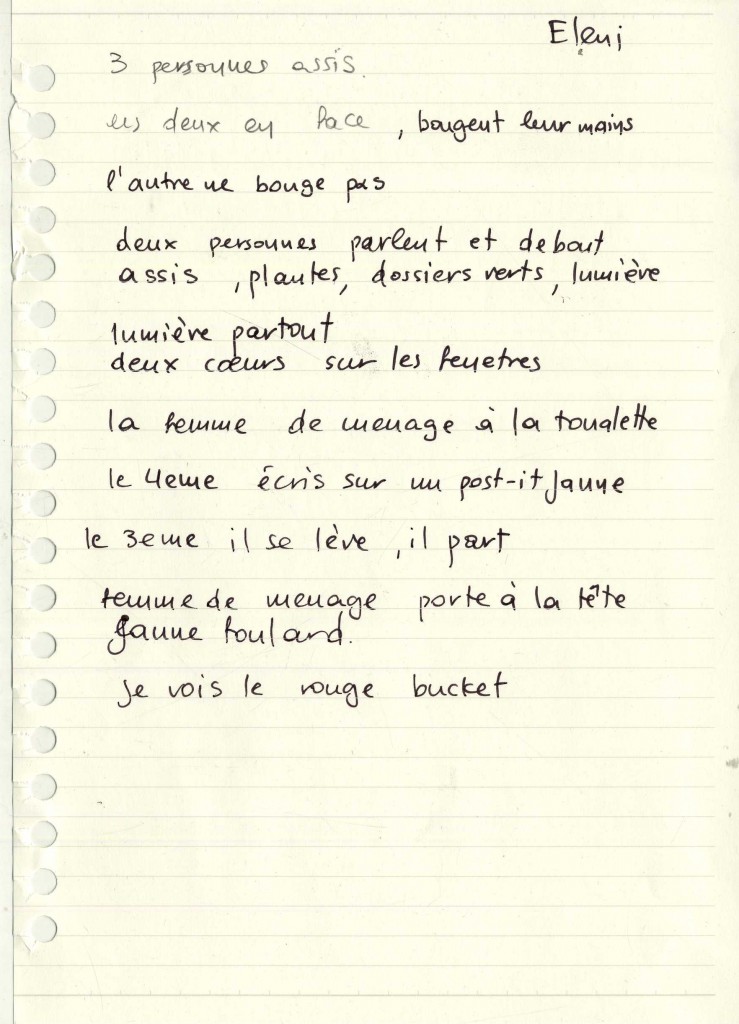 Eleni
3 personnes assis.
les deux en face, bougent leur mains
l'autre ne bouge pas
deux personnes parlent et debout
assis, plantes, dossiers verts, lumière
lumière partout
deux cœurs sur les fenetres
la femme de menage à la toualette
le 4eme écris sur un post-it jaune
le 3eme il se lève, il part
femme de menage porte à la tête
jaune foulard.
je vois le rouge bucket